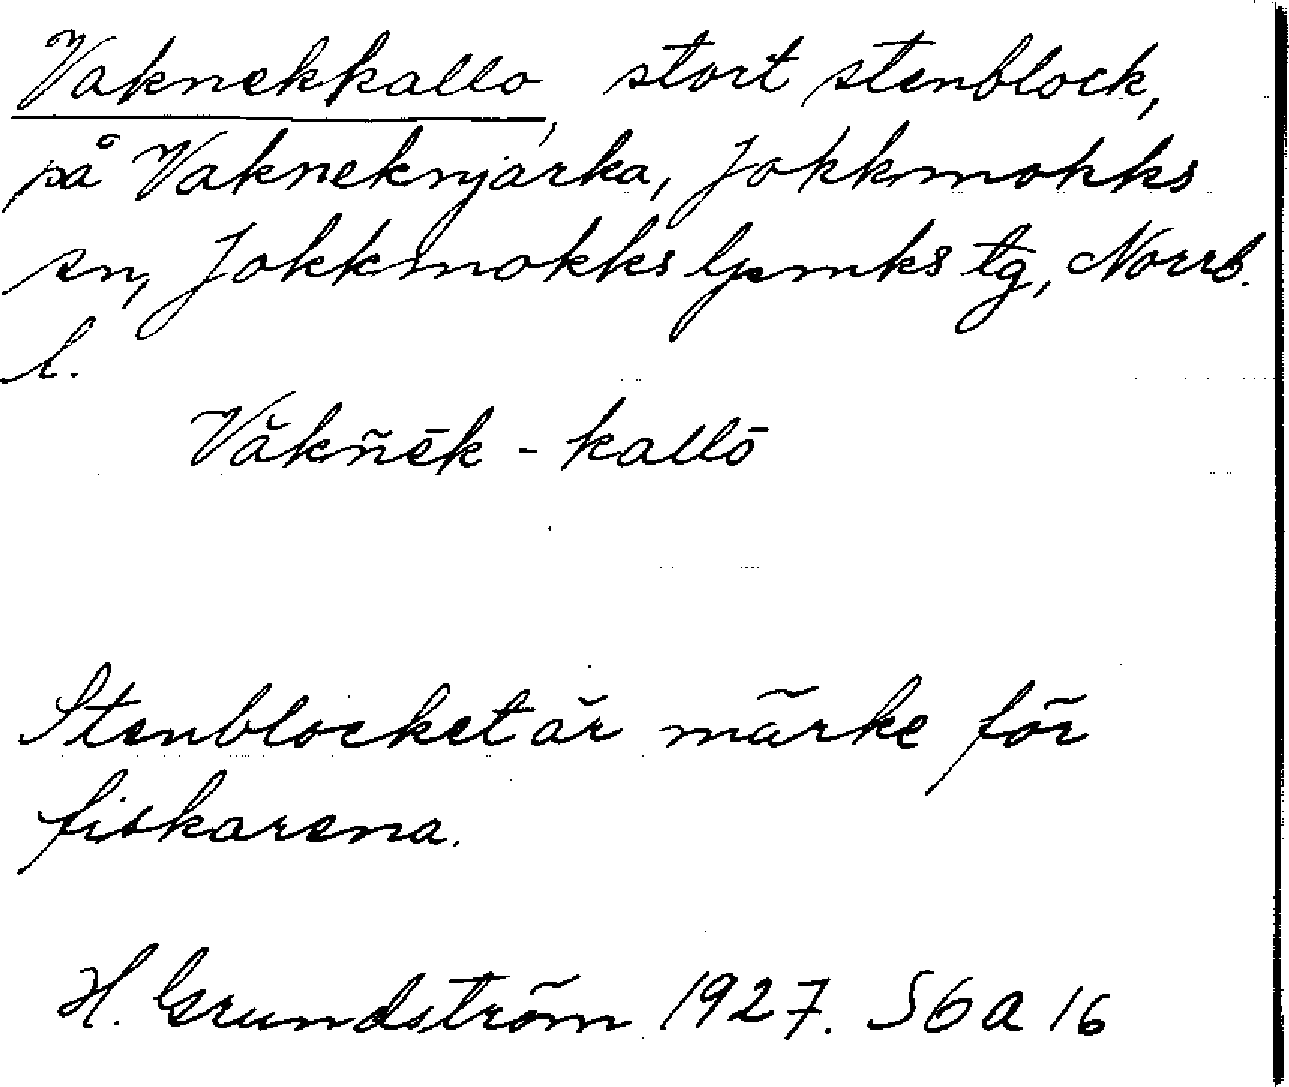 Vaknekkallo, stort stenblock,
på Vakneknjarka, Jokkmokks
sn, Jokkmokks lpmks tg, Norrb.
l.
Văkñēk - kallō
Stenblocket är märke för
fiskarena.
H. Grundström 1927. S6a16